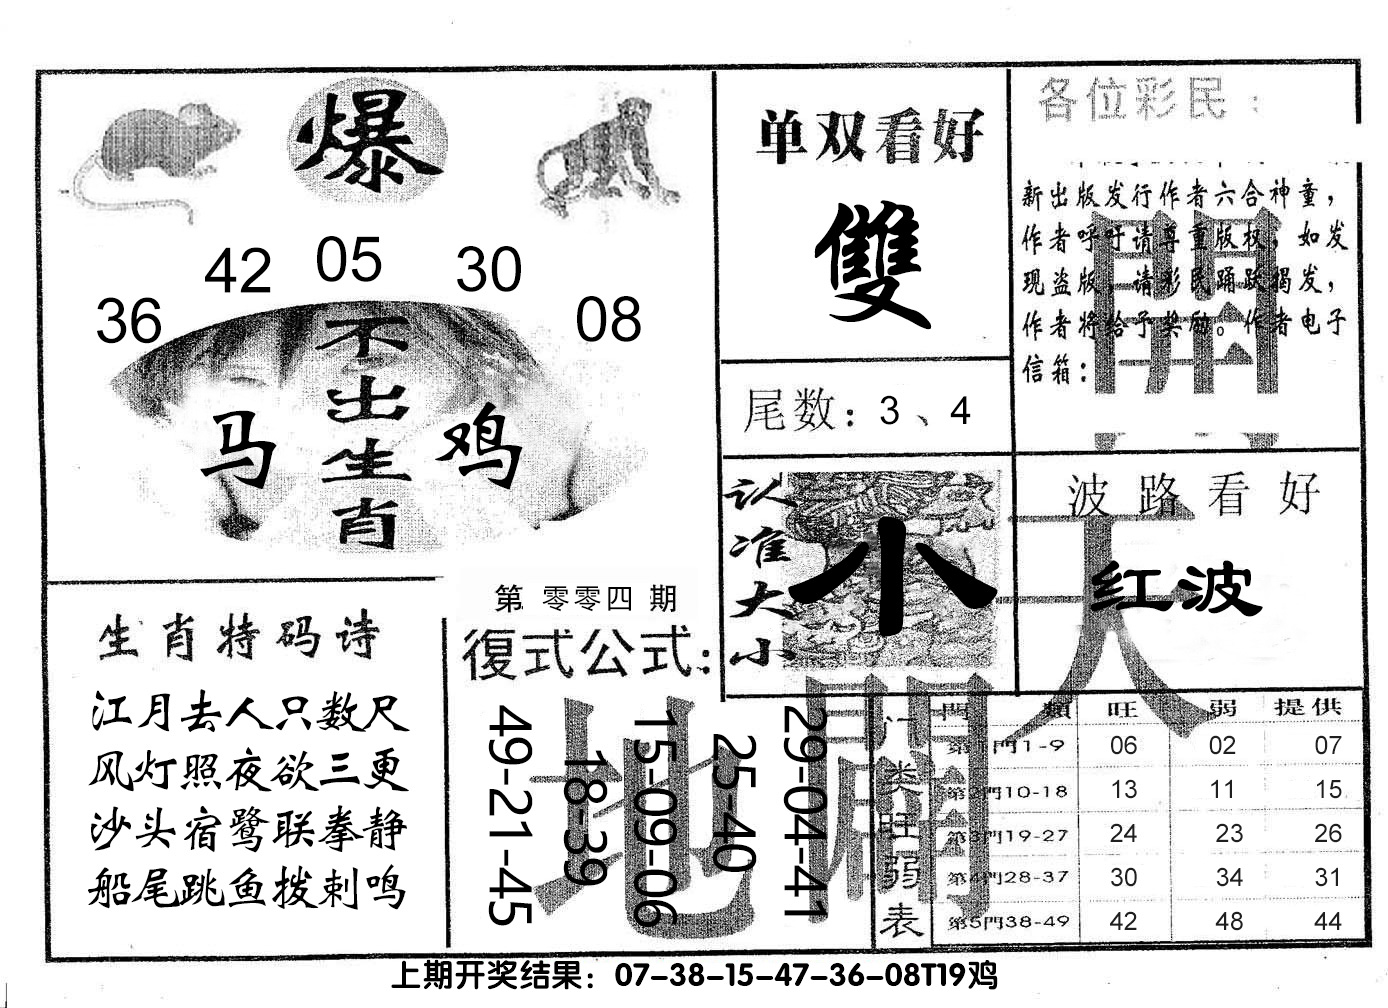 爆
36
42
05
30
08
不出生肖
马
鸡
单双看好
雙
尾数：3、4
各位彩民：
新出版发行作者六合神童，
作者呼吁请尊重版权，如发
现盗版，请彩民踊跃揭发，
作者将给予奖励。作者电子
信箱：
認准大小
小
波路看好
红波
天
開
地
生肖特码诗
江月去人只数尺
风灯照夜欲三更
沙头宿鹭联拳静
船尾跳鱼拨刺鸣
第零零四期
復式公式：
49-21-45
18-39
15-09-06
25-40
29-04-41
门类旺弱表
門類 旺 弱 提供
第1門1-9 06 02 07
第2門10-18 13 11 15
第3門19-27 24 23 26
第4門28-37 30 34 31
第5門38-49 42 48 44
上期开奖结果：07-38-15-47-36-08T19鸡